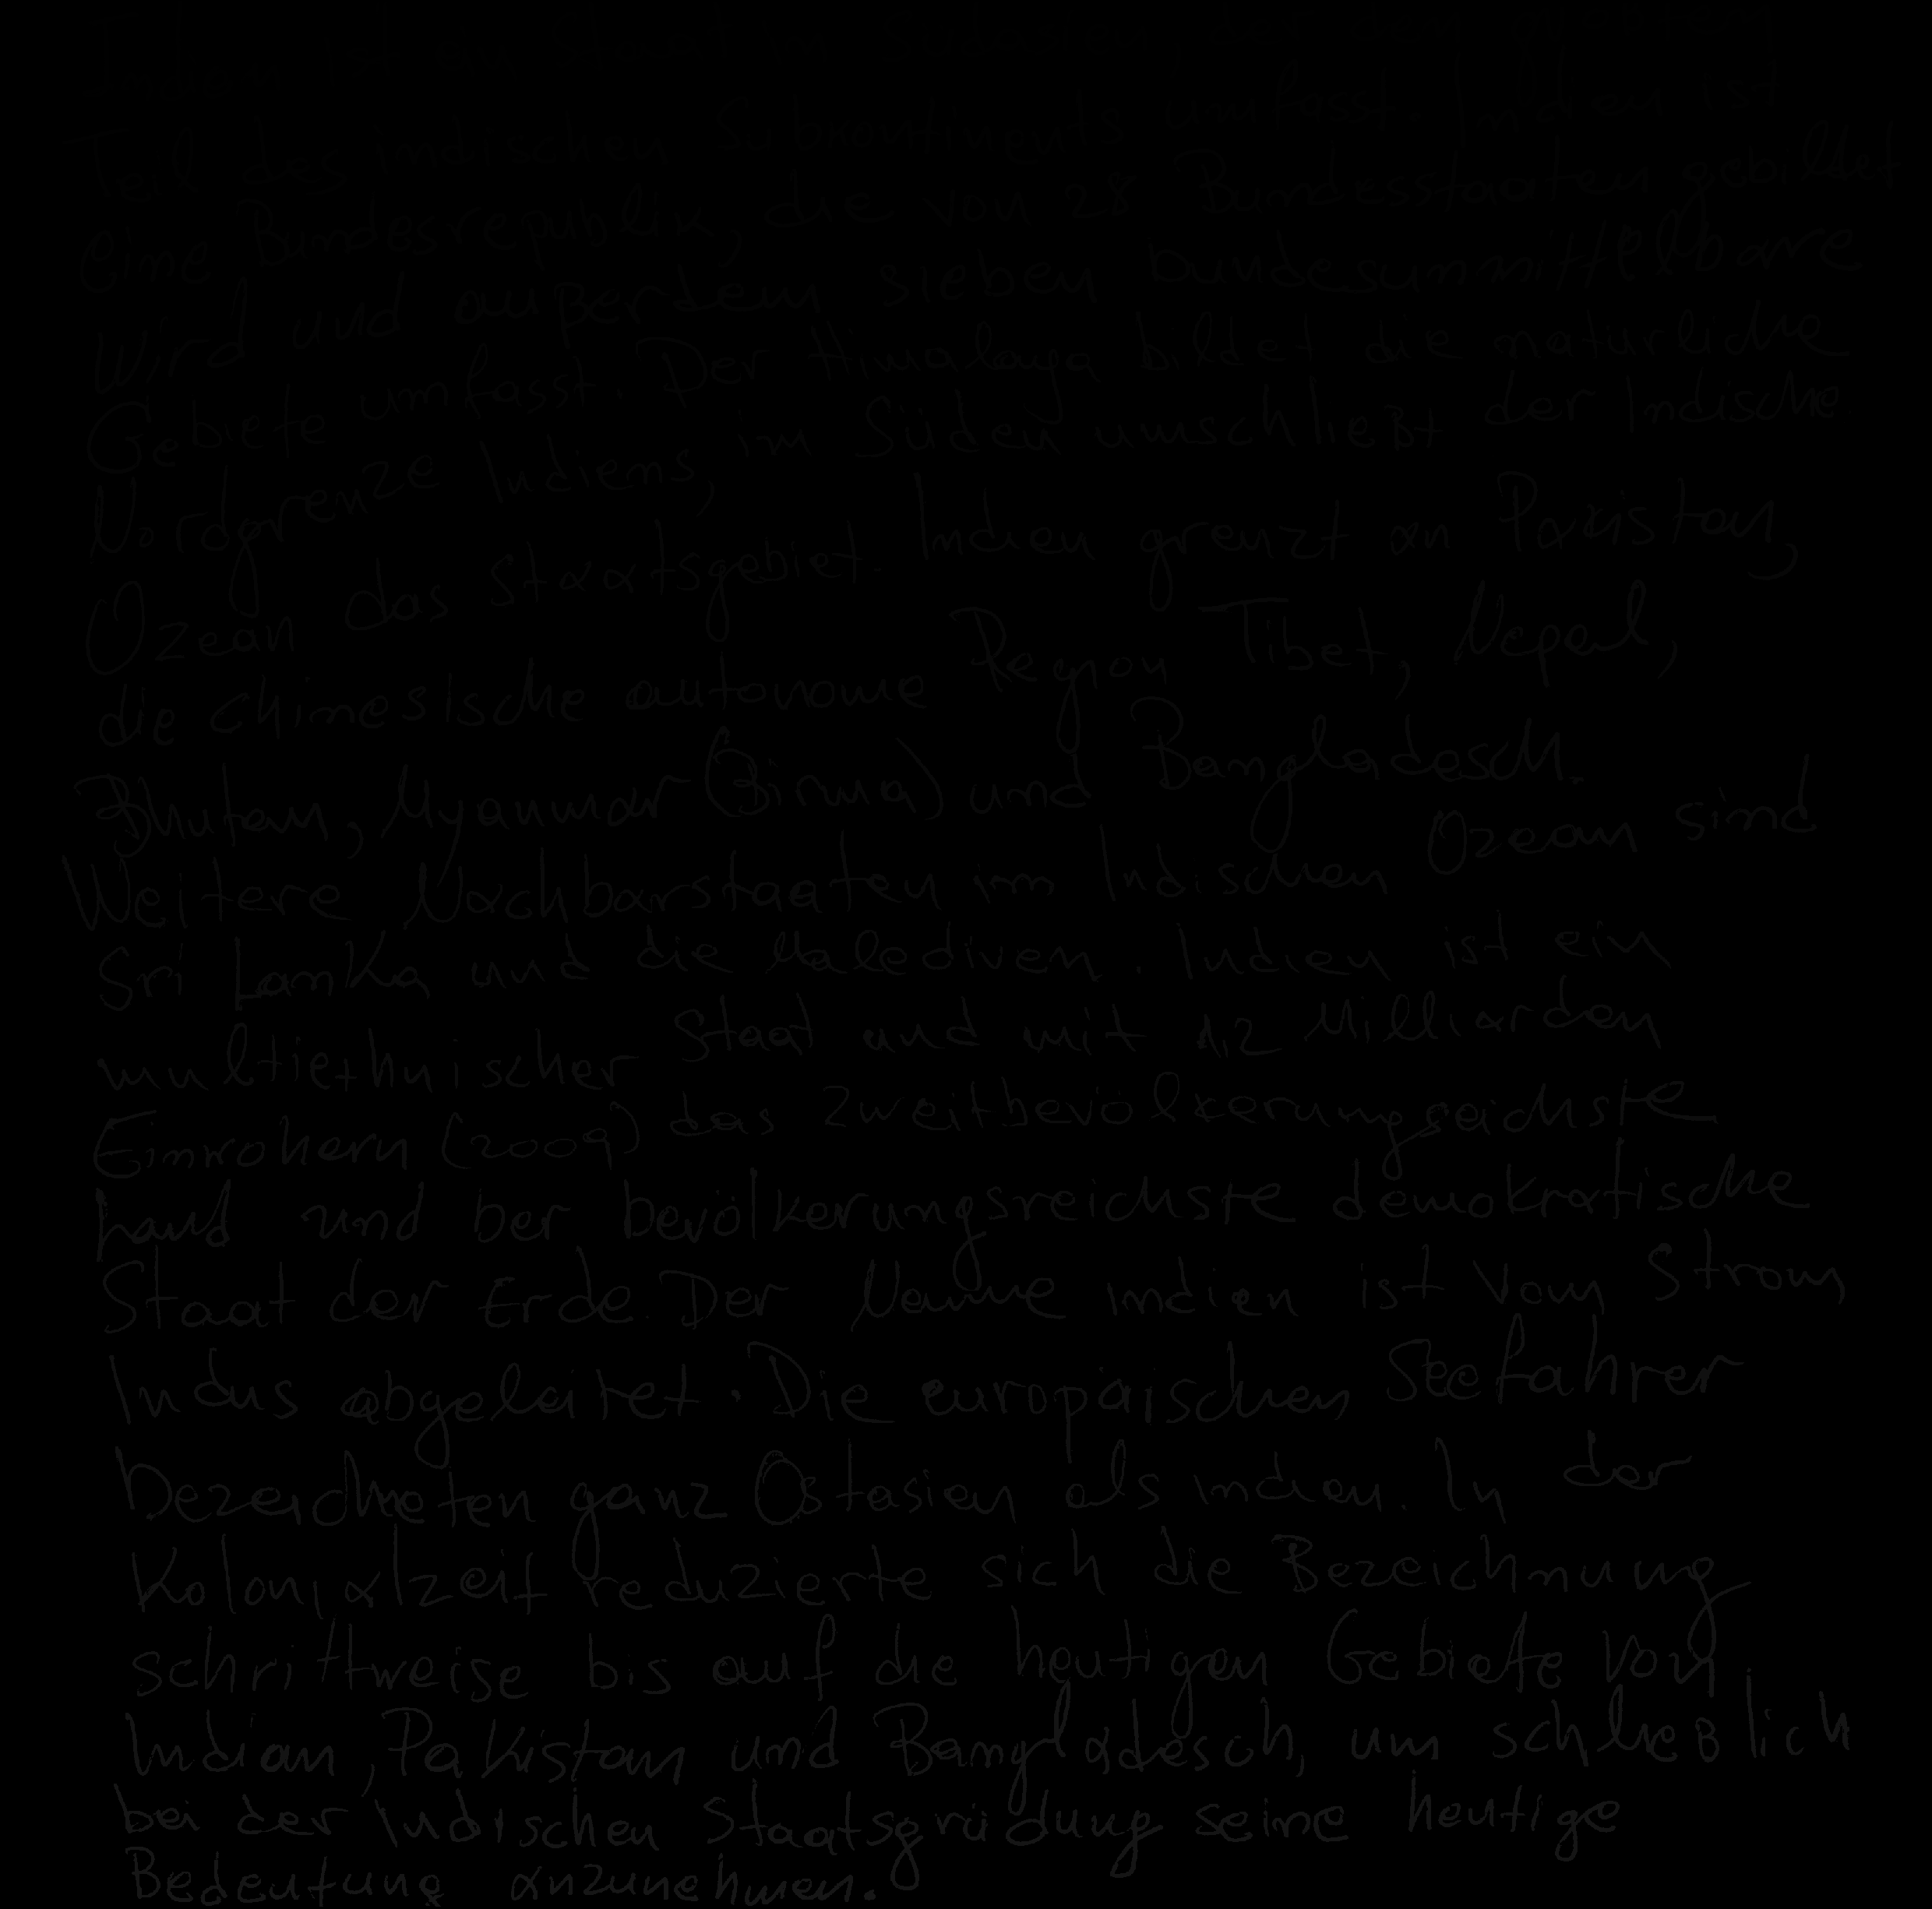 Indien ist ein Staat in Südasien, der den größten
Teil des indischen Subkontinents umfasst. Indien ist
eine Bundesrepublik, die von 28 Bundesstaaten gebildet
wird und außerdem sieben bundesunmittelbare
Gebiete umfasst. Der Himalaya bildet die natürliche
Nordgrenze Indiens, im Süden umschließt der Indische
Ozean das Staatsgebiet. Indien grenzt an Pakistan,
die chinesische autonome Region Tibet, Nepal,
Bhutan, Myanmar (Birma) und Bangladesch.
Weitere Nachbarstaaten im Indischen Ozean sind
Sri Lanka und die Malediven. Indien ist ein
multiethnischer Staat und mit 1,2 Milliarden
Einwohern (2009) das zweitbevölkerungsreichste
Land und ber bevölkerungsreichste demokratische
Staat der Erde. Der Name Indien ist vom Strom
Indus abgeleitet. Die europäischen Seefahrer
bezeichneten ganz Ostasien als Indien. In der
Kolonialzeit reduzierte sich die Bezeichnung
schrittweise bis auf die heutigen Gebiete von
Indian, Pakistan und Bangladesch, um schließlich
bei der Indischen Staatsgrüdung seine heutige
Bedeutung anzunehmen.